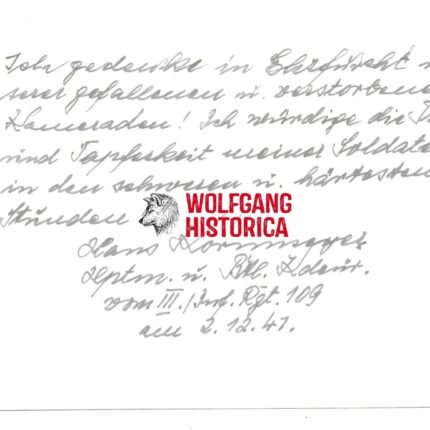 Ich gedenke in Ehrfurcht u
serer gefallenen u. verstorbene
Kameraden! Ich würdige die T
und Tapferkeit meiner Soldate
in den schweren u. härtesten
Stunden
WOLFGANG
HISTORICA
Hans
Hptm. u. Btl. Kdeur.
vom III./Inf. Rgt. 109
am 2.12.41.